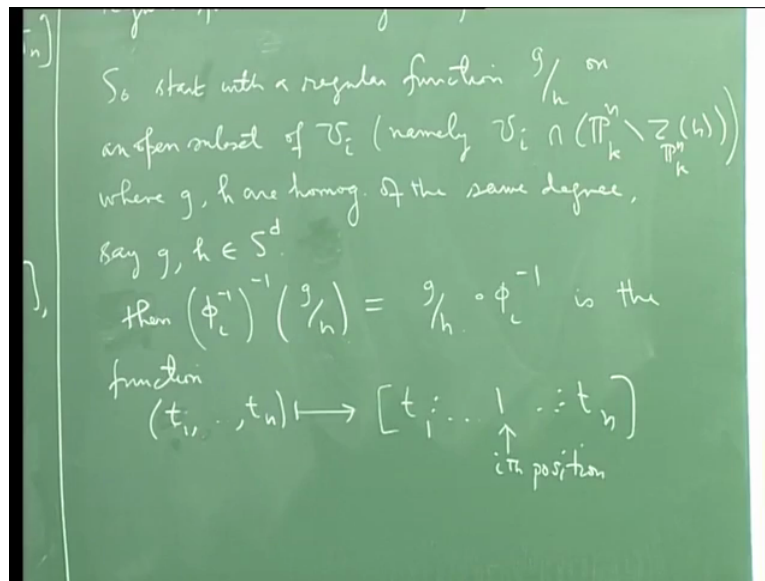 So start with a regular function g/h on
an open subset of U_i (namely U_i ∩ (ℙ^n_k \ Z_{ℙ^n_k}(h)))
where g, h are homog. of the same degree,
say g, h ∈ S^d.
then (φ_i^{-1})^{-1} (g/h) = g/h ∘ φ_i^{-1} is the
function
(t_1, .., t_n) ⟼ [t_1 : ... 1 ..: t_n]
↑
ith position
n]
],